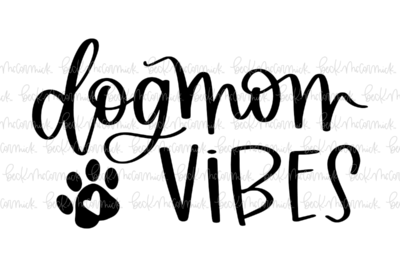 dogmom
ViBES